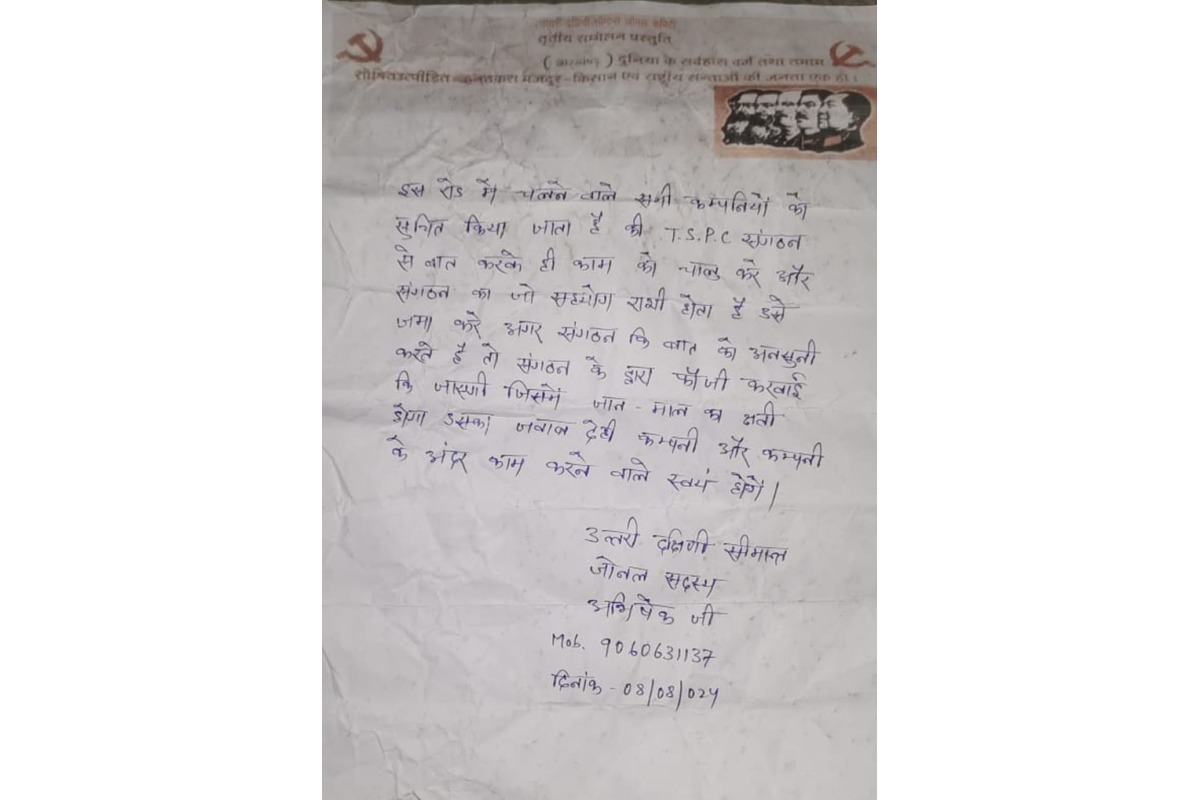 तृतीय सम्मेलन प्रस्तुति
( झारखण्ड ) दुनिया के सर्वहारा वर्ग तथा तमाम
मजदूर-किसान एवं राष्ट्रीय जनता एक हो।
इस रोड में चलने वाले सभी कम्पनियों को
सुचित किया जाता है की T.S.P.C संगठन
से बात करके ही काम को चालु करे और
संगठन का जो सहयोग राशी होता है उसे
जमा करे अगर संगठन कि बात को अनसुनी
करते है तो संगठन के द्वारा फौजी करवाई
कि जाएगी जिसमें जान-माल का क्षती
होगा उसका जवाब देही कम्पनी और कम्पनी
के अंदर काम करने वाले स्वयं होगें।
उत्तरी दक्षिणी सीमान्त
जोनल सदस्य
अभिषेक जी
Mob. 9060631137
दिनांक - 08/08/024